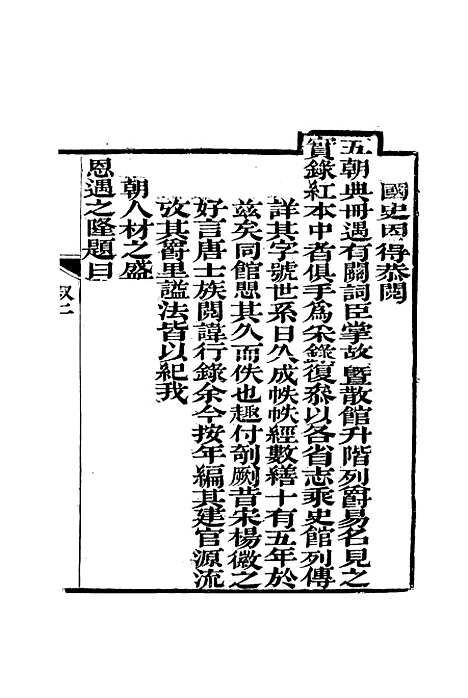 國史因得恭閱
五朝典冊遇有關詞臣掌故曁散館升階列爵易名見之
實錄紅本中者俱手爲采錄復叅以各省志乘史館列傳
詳其字號世系日久成帙帙經數繕十有五年於
兹矣同館思其久而佚也趣付剞劂昔宋楊徽之
好言唐士族閥諱行錄余今按年編其建官源流
攷其爵里謚法皆以紀我
朝人材之盛
恩遇之隆題曰
叙二